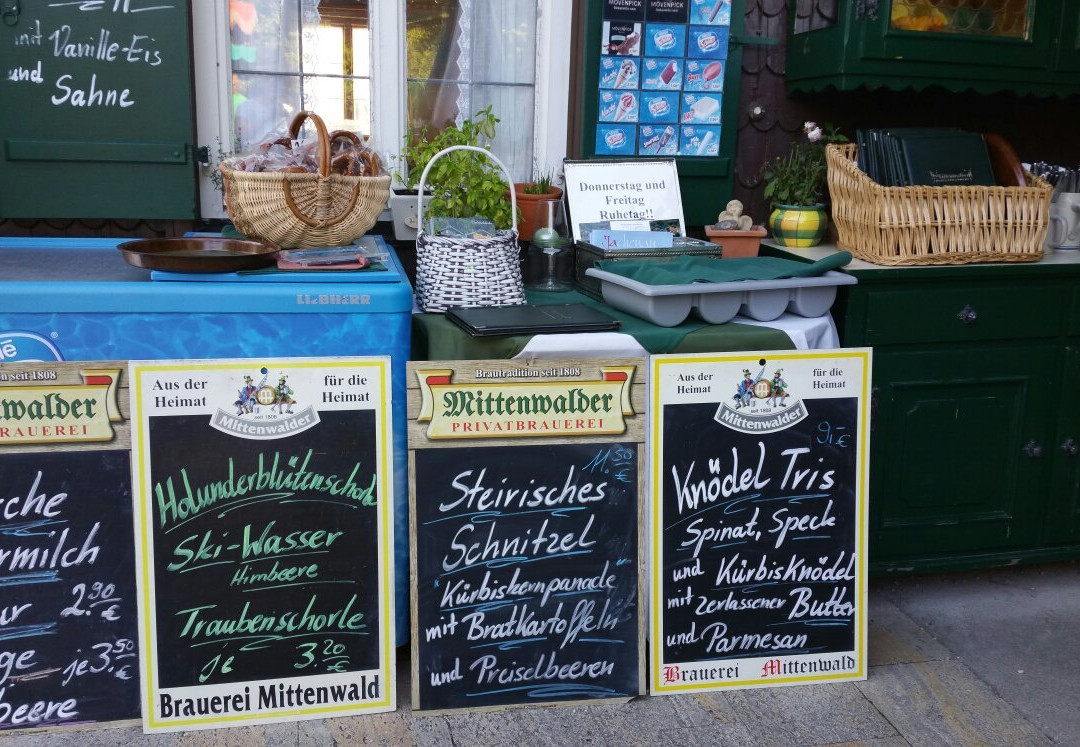 mit Vanille-Eis
und
Sahne
MÖVENPICK
MÖVENPICK
Donnerstag und
Freitag
Ruhetag!!
LIEBHERR
seit 1808
walder
RAUEREI
rche
rmilch
ur 2.90 €
ge je 3.50 €
beere
Aus der Heimat
für die Heimat
seit 1808
Mittenwalder
Holunderblütenschorle
Ski-Wasser
Himbeere
Traubenschorle
je 3.20 €
Brauerei Mittenwald
Brautradition seit 1808
Mittenwalder
PRIVATBRAUEREI
11.50 €
Steirisches
Schnitzel
"Kürbiskernpanade"
mit Bratkartoffeln
und Preiselbeeren
Aus der Heimat
für die Heimat
seit 1808
Mittenwalder
9,- €
Knödel Tris
Spinat, Speck
und Kürbisknödel
mit zerlassener Butter
und Parmesan
Brauerei Mittenwald